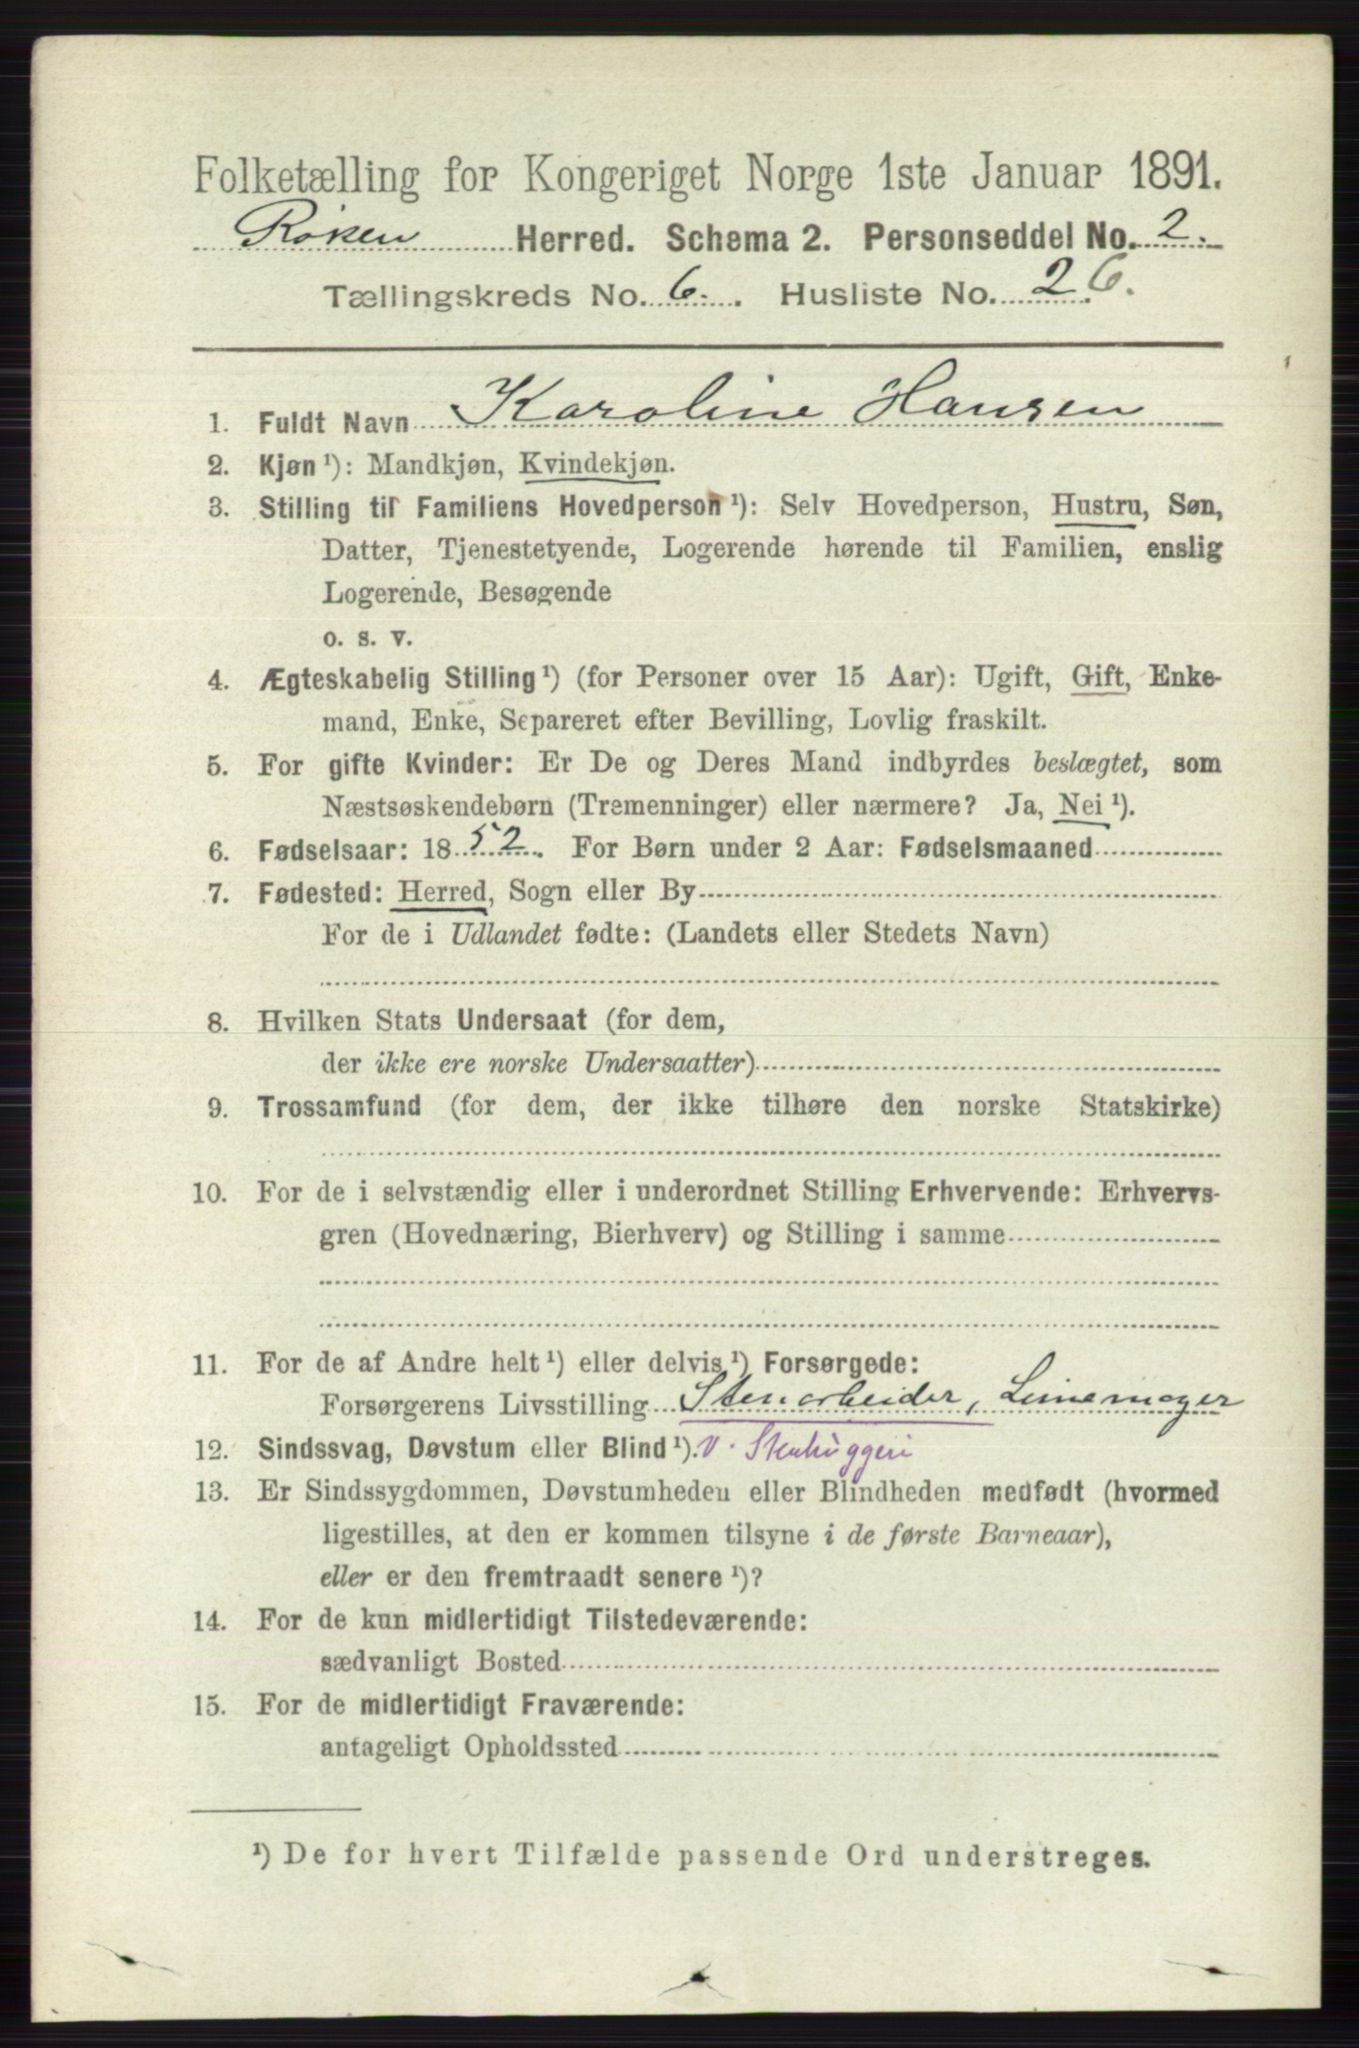 Folketælling for Kongeriget Norge 1ste Januar 1891.
Røken Herred. Schema 2. Personseddel No. 2.
Tællingskreds No. 6. Husliste No. 26.
1. Fuldt Navn Karoline Hansen
2. Kjøn ¹): Mandkjøn, Kvindekjøn.
3. Stilling til Familiens Hovedperson ¹): Selv Hovedperson, Hustru, Søn,
Datter, Tjenestetyende, Logerende hørende til Familien, enslig
Logerende, Besøgende
o. s. v.
4. Ægteskabelig Stilling ¹) (for Personer over 15 Aar): Ugift, Gift, Enke-
mand, Enke, Separeret efter Bevilling, Lovlig fraskilt.
5. For gifte Kvinder: Er De og Deres Mand indbyrdes beslægtet, som
Næstsøskendebørn (Tremenninger) eller nærmere? Ja, Nei ¹).
6. Fødselsaar: 1852. For Børn under 2 Aar: Fødselsmaaned
7. Fødested: Herred, Sogn eller By
For de i Udlandet fødte: (Landets eller Stedets Navn)
8. Hvilken Stats Undersaat (for dem,
der ikke ere norske Undersaatter)
9. Trossamfund (for dem, der ikke tilhøre den norske Statskirke)
10. For de i selvstændig eller i underordnet Stilling Erhvervende: Erhvervs-
gren (Hovednæring, Bierhverv) og Stilling i samme
11. For de af Andre helt ¹) eller delvis ¹) Forsørgede:
Forsørgerens Livsstilling Stenarbeider,
12. Sindssvag, Døvstum eller Blind ¹). v. Stenhuggeri
13. Er Sindssygdommen, Døvstumheden eller Blindheden medfødt (hvormed
ligestilles, at den er kommen tilsyne i de første Barneaar),
eller er den fremtraadt senere ¹)?
14. For de kun midlertidigt Tilstedeværende:
sædvanligt Bosted
15. For de midlertidigt Fraværende:
antageligt Opholdssted
¹) De for hvert Tilfælde passende Ord understreges.